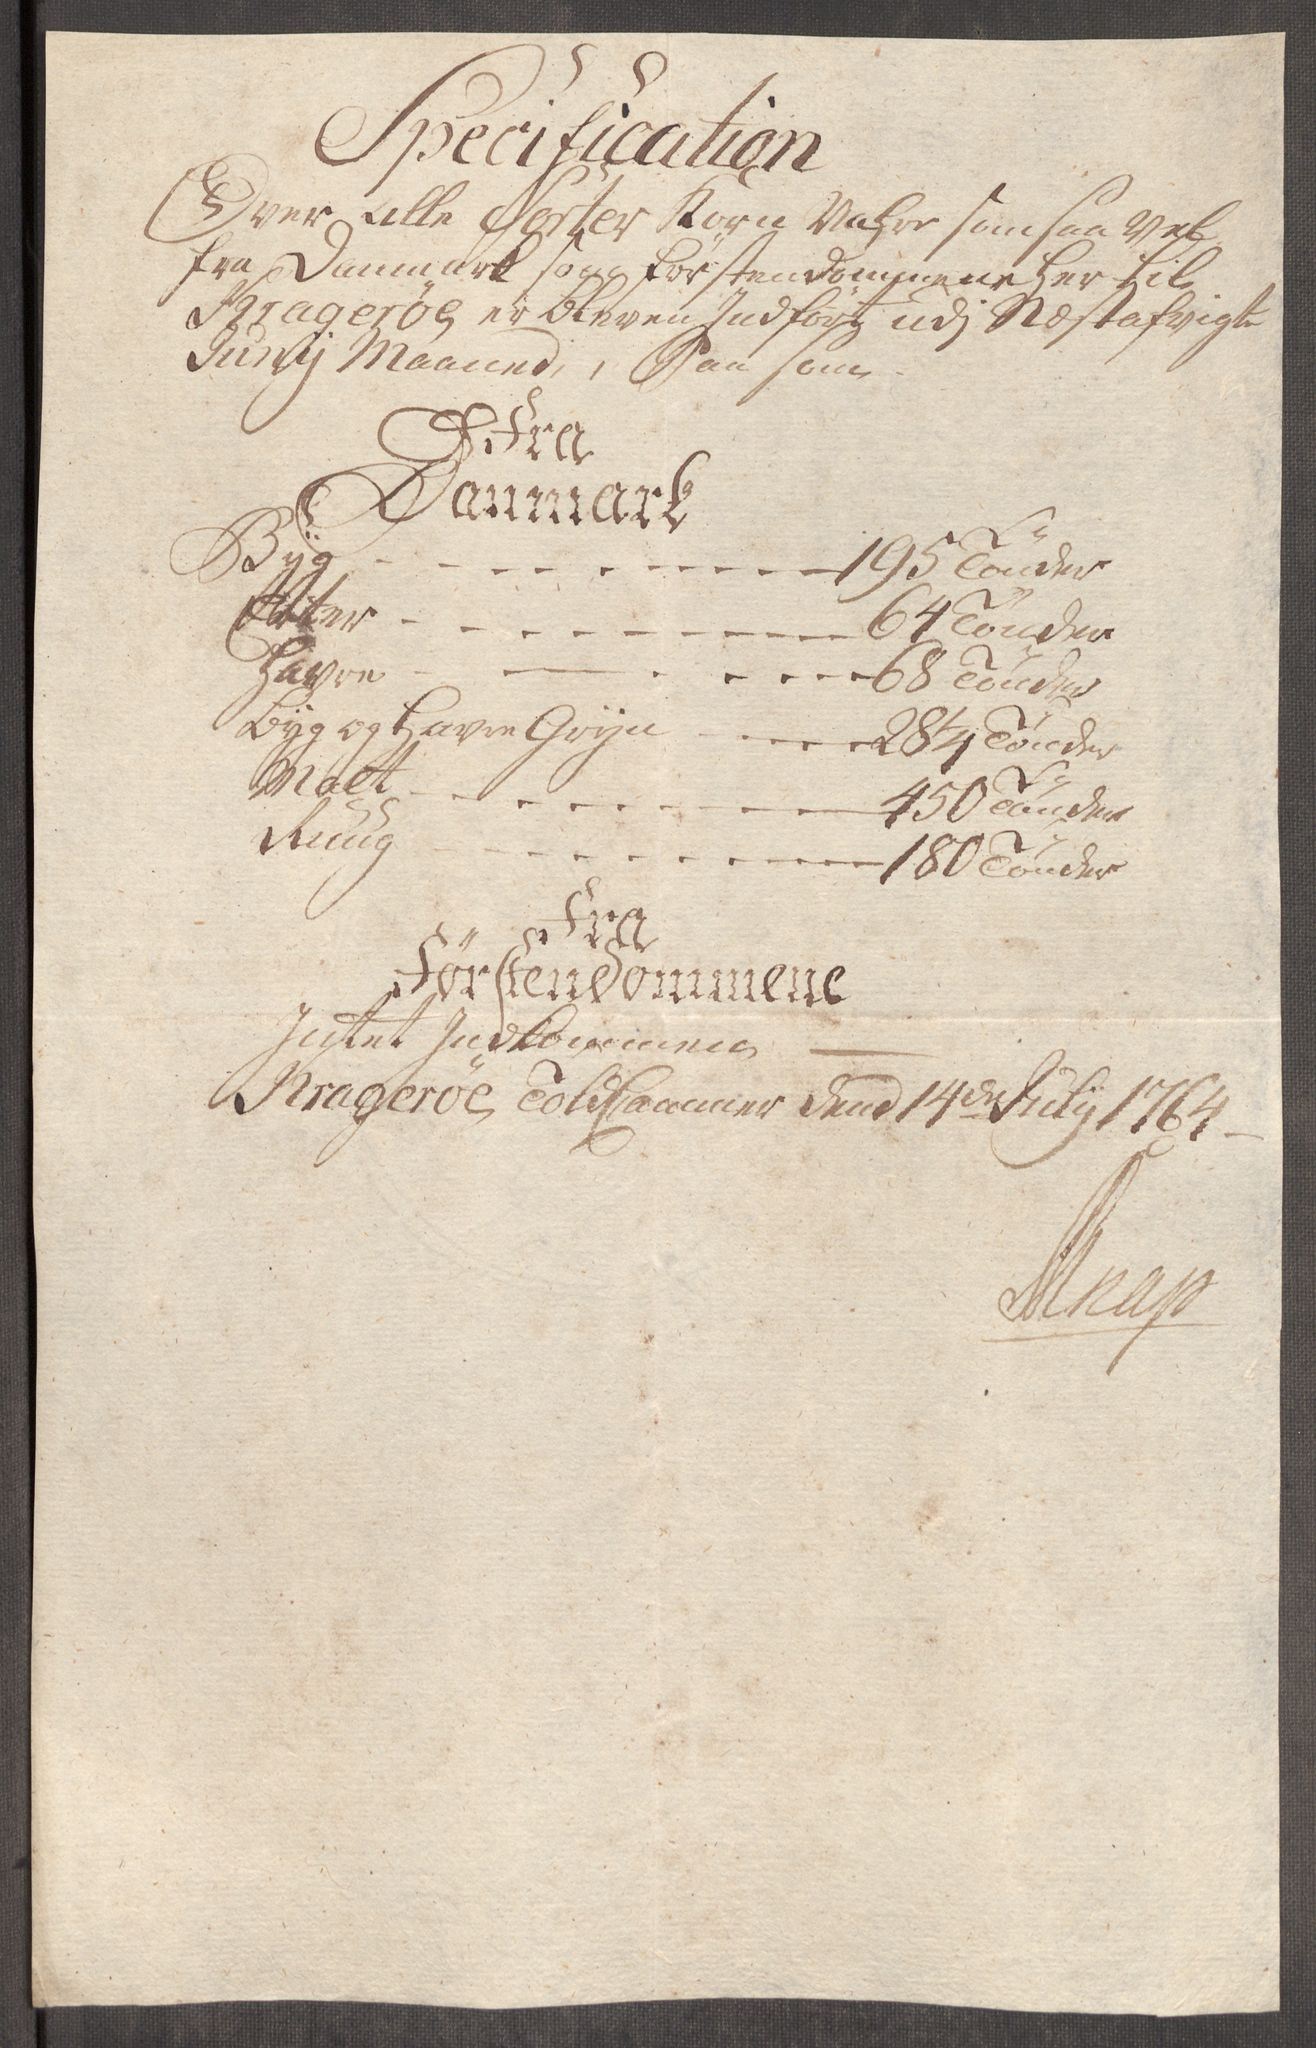 Specification
Over alle Sorter Korn Vahre som saa vel
fra Danmark som Förstendommene her til
Krageröe er bleven Indfört udj Næstafvigte
Junij Maaned, Saa som
Fra
Danmark
Byg 195 Tönder
Erter 64 Tönder
Havre 68 Tönder
Byg og Havre Gryn 28¼ Tönder
Malt 450 Tönder
Ruug 180 Tönder
Fra
Förstendommene
Intet Indkommen
Krageröe Told Cammer dend 14de Julij 1764
Knap